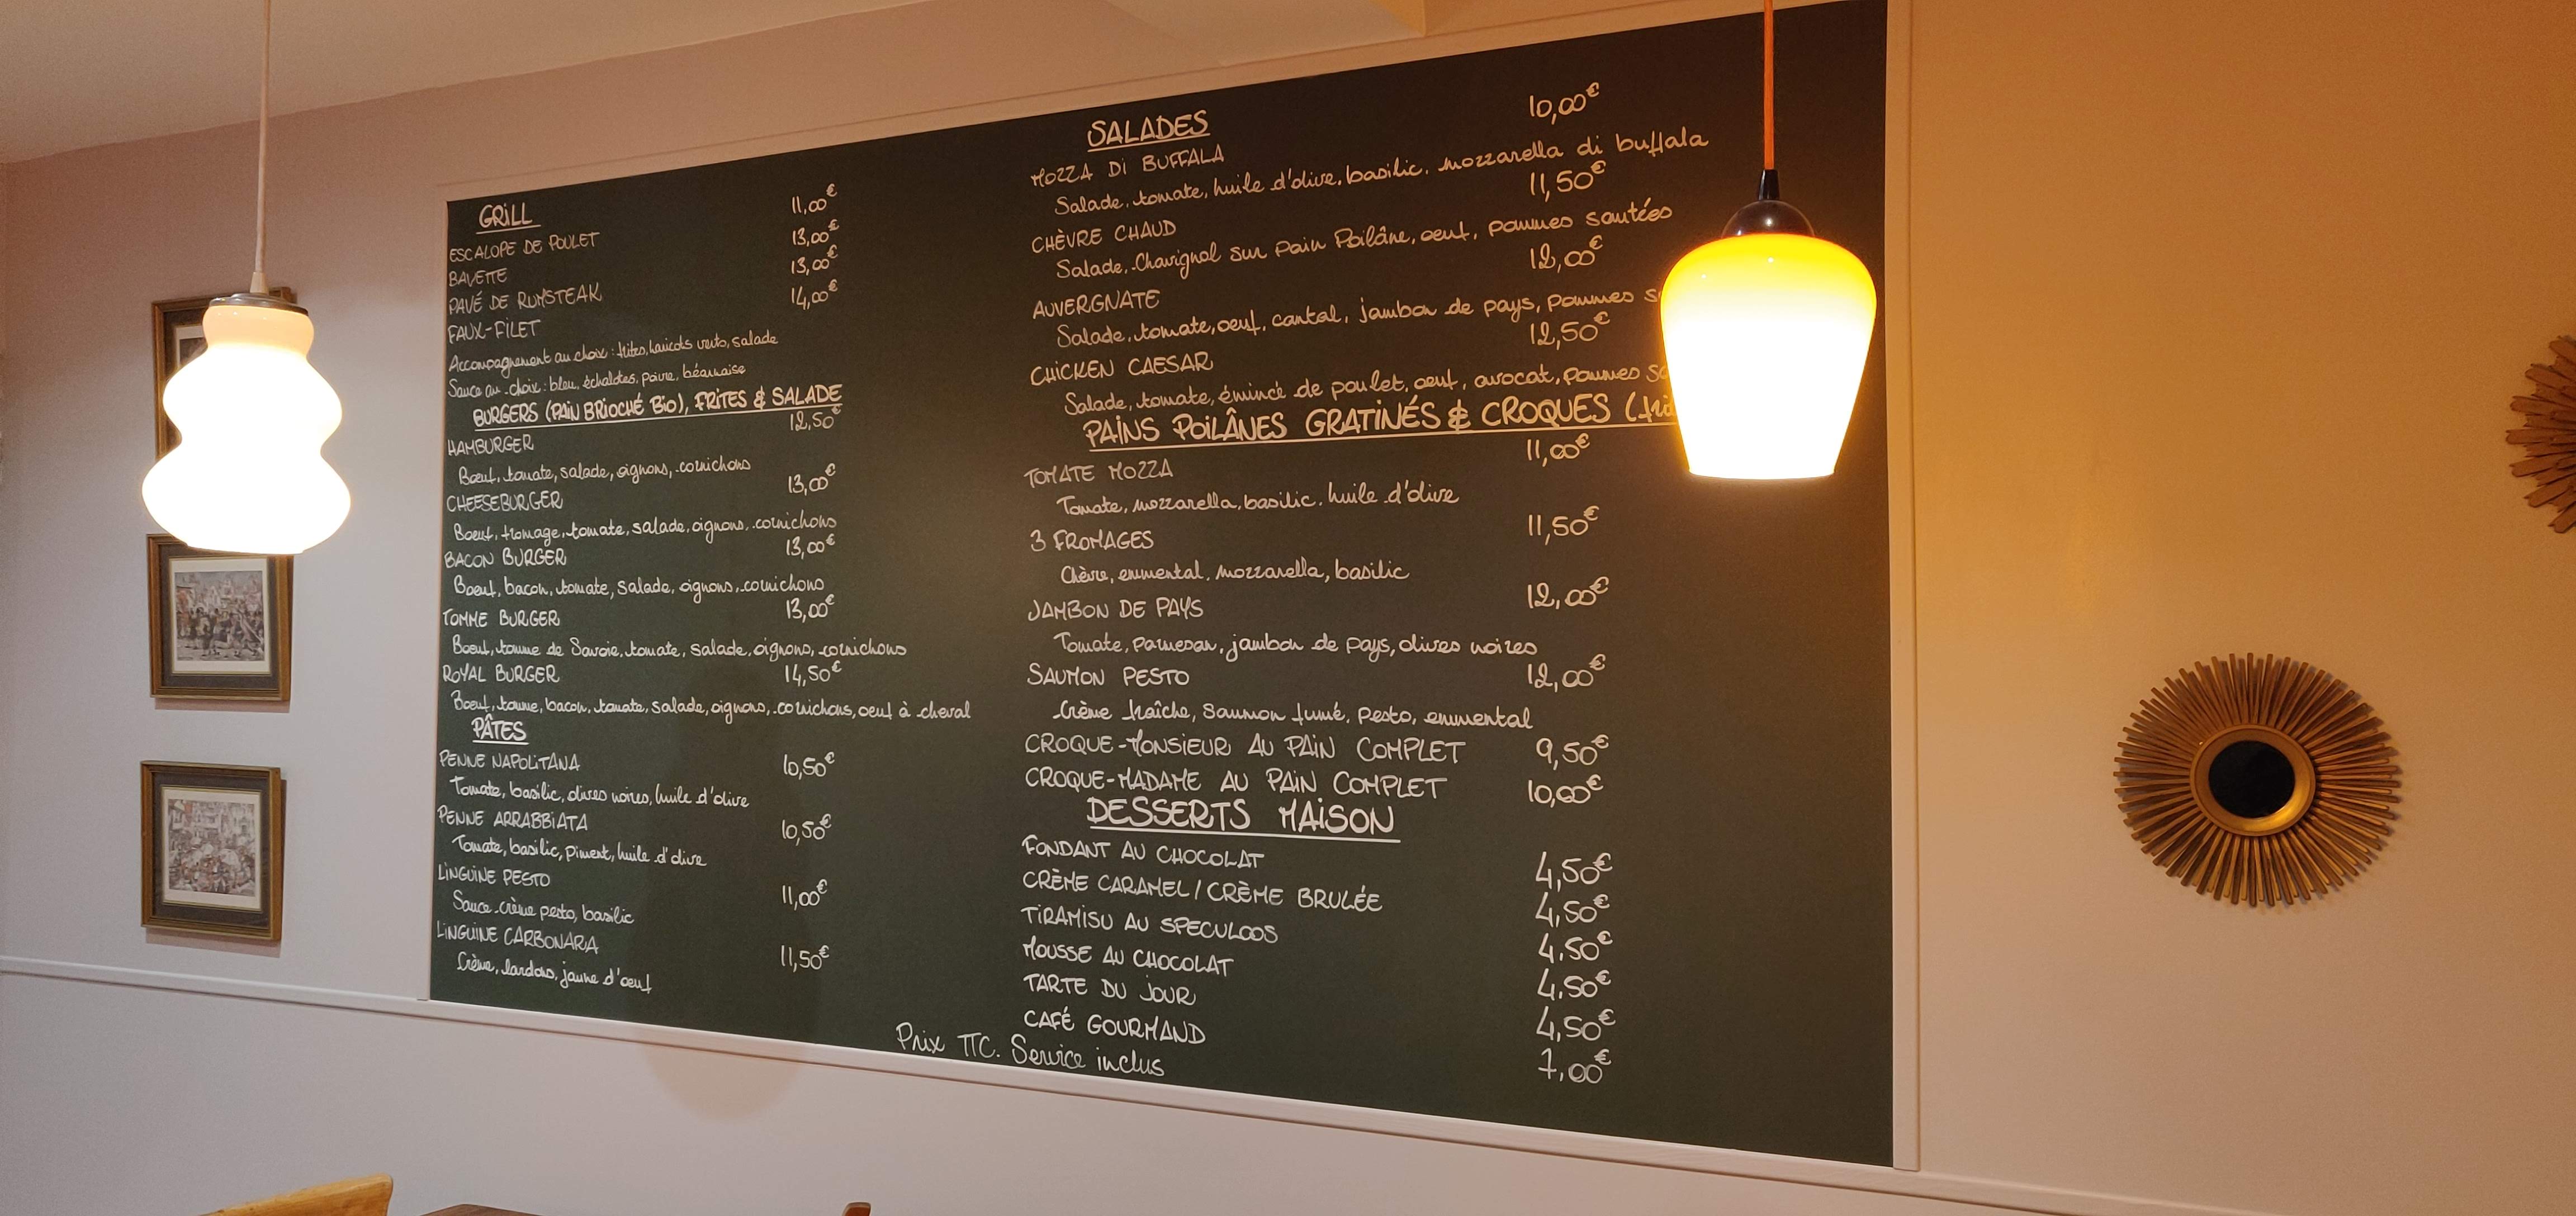 GRILL
ESCALOPE DE POULET 11,00€
BAVETTE 13,00€
PAVÉ DE RUMSTEAK 13,00€
FAUX-FILET 14,00€
Accompagnement au choix : frites, haricots verts, salade
Sauce au choix : bleu, échalotes, poivre, béarnaise
BURGERS (PAIN BRIOCHÉ BIO), FRITES & SALADE
HAMBURGER 12,50€
Boeuf, tomate, salade, oignons, cornichons
CHEESEBURGER 13,00€
Boeuf, fromage, tomate, salade, oignons, cornichons
BACON BURGER 13,00€
Boeuf, bacon, tomate, salade, oignons, cornichons
TOMME BURGER 13,00€
Boeuf, tomme de Savoie, tomate, salade, oignons, cornichons
ROYAL BURGER 14,50€
Boeuf, tomme, bacon, tomate, salade, oignons, cornichons, oeuf à cheval
PÂTES
PENNE NAPOLITANA 10,50€
Tomate, basilic, olives noires, huile d'olive
PENNE ARRABBIATA 10,50€
Tomate, basilic, piment, huile d'olive
LINGUINE PESTO 11,00€
Sauce crème pesto, basilic
LINGUINE CARBONARA 11,50€
Crème, lardons, jaune d'oeuf
SALADES
MOZZA DI BUFFALA 10,00€
Salade, tomate, huile d'olive, basilic, mozzarella di buffala
CHÈVRE CHAUD 11,50€
Salade, Chavignol sur pain Poilâne, oeuf, pommes sautées
AUVERGNATE 12,00€
Salade, tomate, oeuf, cantal, jambon de pays, pommes
CHICKEN CAESAR 12,50€
Salade, tomate, émincé de poulet, oeuf, avocat, pommes
PAINS POILÂNES GRATINÉS & CROQUES
TOMATE MOZZA 11,00€
Tomate, mozzarella, basilic, huile d'olive
3 FROMAGES 11,50€
Chèvre, emmental, mozzarella, basilic
JAMBON DE PAYS 12,00€
Tomate, parmesan, jambon de pays, olives noires
SAUMON PESTO 12,00€
Crème fraîche, saumon fumé, pesto, emmental
CROQUE-MONSIEUR AU PAIN COMPLET 9,50€
CROQUE-MADAME AU PAIN COMPLET 10,00€
DESSERTS MAISON
FONDANT AU CHOCOLAT 4,50€
CRÈME CARAMEL / CRÈME BRULÉE 4,50€
TIRAMISU AU SPECULOOS 4,50€
MOUSSE AU CHOCOLAT 4,50€
TARTE DU JOUR 4,50€
CAFÉ GOURMAND 7,00€
Prix TTC. Service inclus